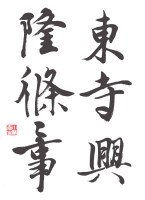 東寺興
隆條事